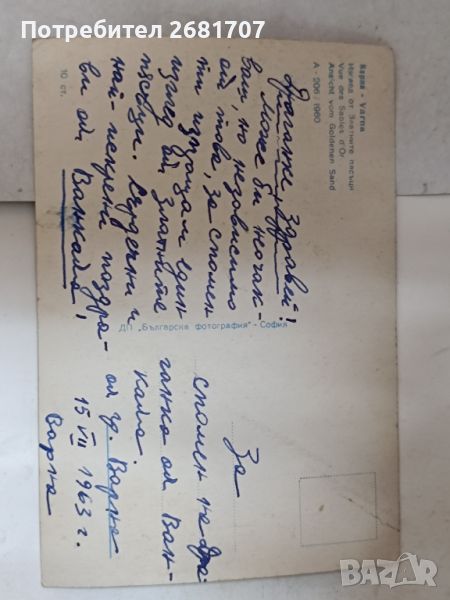 Потребител 2681707
Варна - Varna
Изглед от Златните пясъци
Vue des Sables d'Or
Ansicht vom Goldenen Sand
А - 206 / 1960
10 ст.
Драганке, Здравей!
Може би неочак-
ваш, но независимо
от това, за спомен
ти изпращам един
изглед от Златните
пясъци. Сърдечни и
най-искрени поздра-
ви от Ванката!
ДП „Българска фотография" - София
За
спомен на Дра-
ганка от Ван-
ката.
от гр. Варна
15 VII 1963 г.
Варна
BAZAR